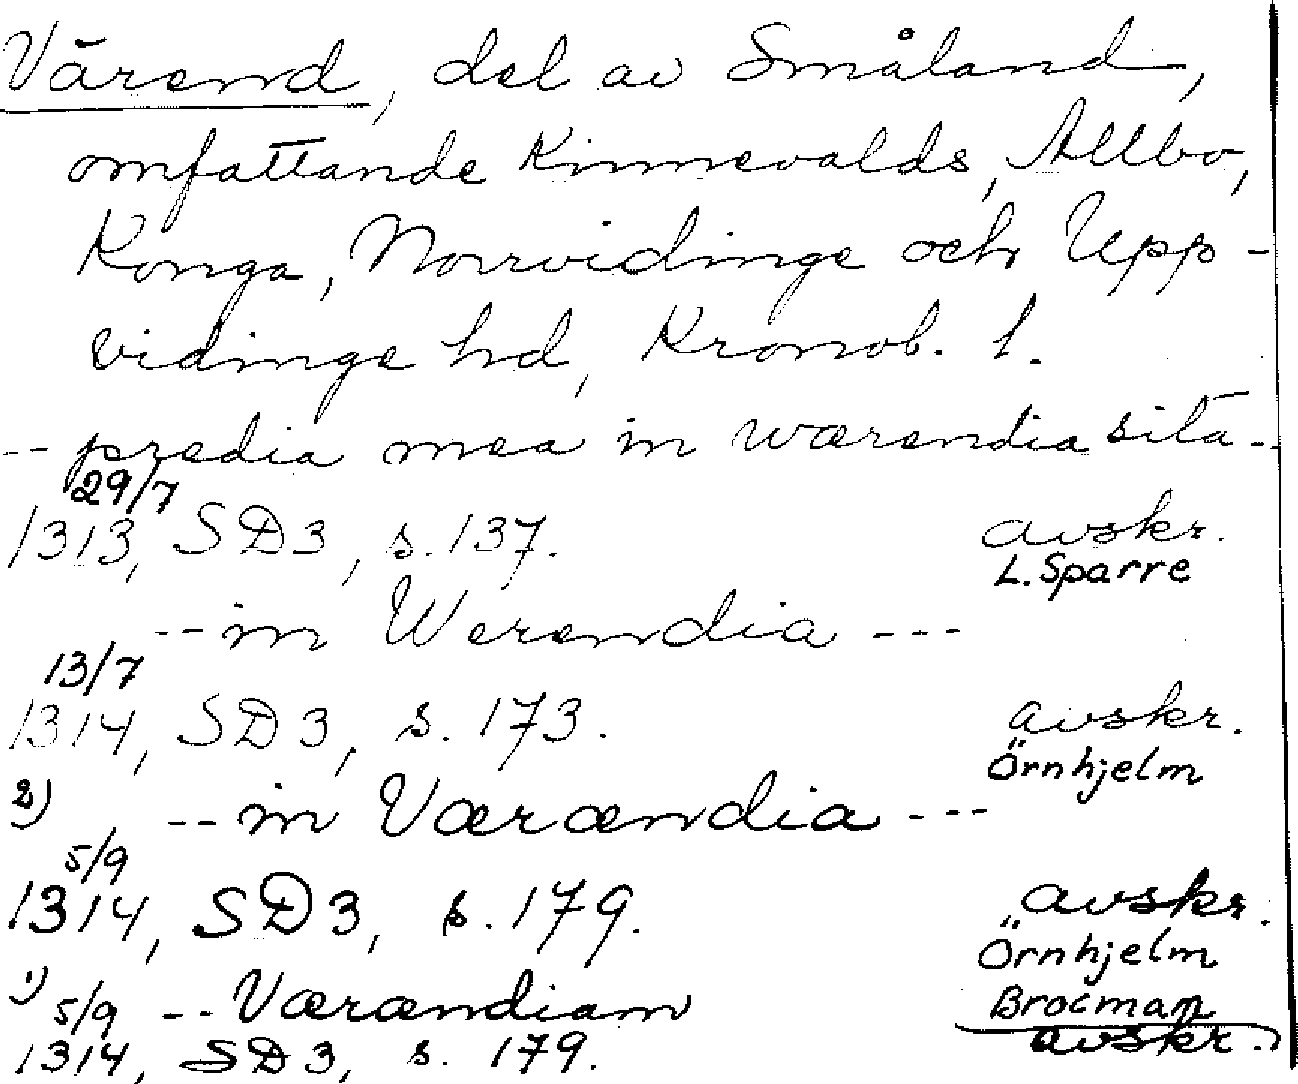 Värend, del av Småland,
omfattande Kinnevalds, Allbo,
Konga, Norrvidinge och Upp-
vidinge hd, Kronob. l.
-- predia mea in wærendia sita --
29/7
1313, SD3, s. 137. avskr.
L. Sparre
-- in Werendia ---
13/7
1314, SD3, s. 173. avskr.
Örnhjelm
2) -- in Værændia ---
5/9
1314, SD3, s. 179. avskr.
Örnhjelm
1) 5/9 -- Værændiam Brocman
1314, SD3, s. 179. avskr.